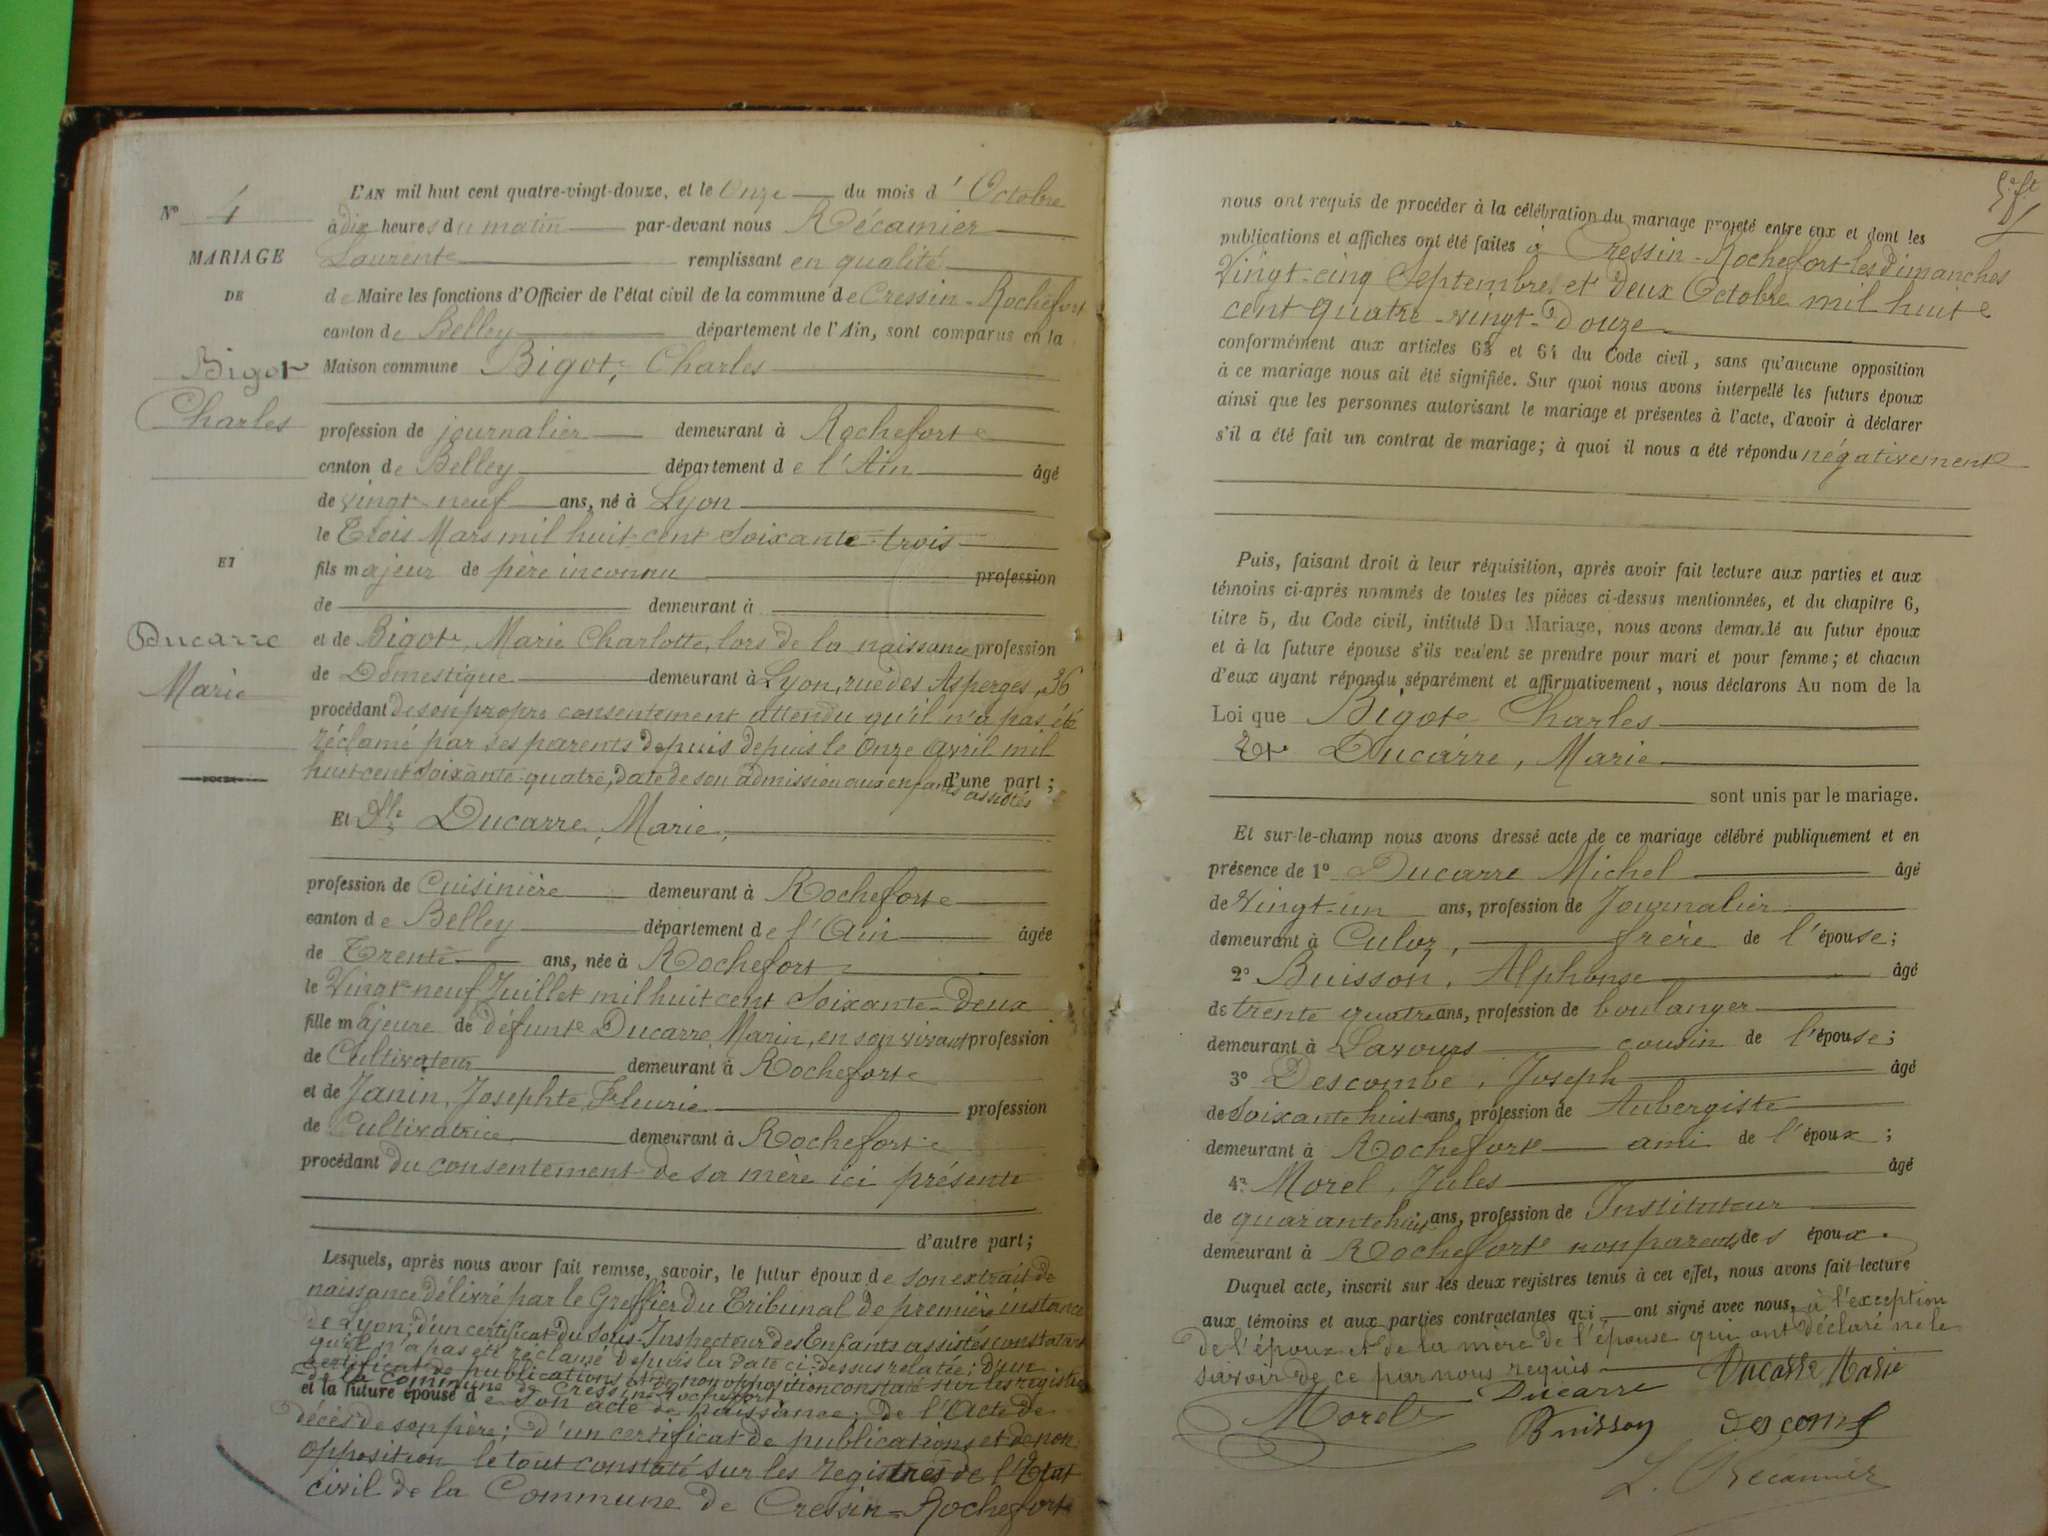 N° 4
MARIAGE
DE
Bigot
Charles
ET
Ducarre
Marie
L'AN mil huit cent quatre-vingt-douze, et le Onze du mois d'Octobre
à dix heures du matin par-devant nous Récamier
Laurent remplissant en qualité
de Maire les fonctions d'Officier de l'état civil de la commune de Cressin-Rochefort
canton de Belley département de l'Ain, sont comparus en la
Maison commune Bigot, Charles
profession de journalier demeurant à Rochefort
canton de Belley département de l'Ain âgé
de vingt neuf ans, né à Lyon
le Trois Mars mil huit cent soixante-trois
fils majeur de père inconnu profession
de demeurant à
et de Bigot, Marie Charlotte, lors de la naissance profession
de Domestique demeurant à Lyon, rue des Asperges, 36
procédant de son propre consentement attendu qu'il n'a pas été
réclamé par ses parents depuis depuis le Onze Avril mil
huit cent soixante-quatre, date de son admission aux enfants assistés d'une part;
Et Dlle Ducarre, Marie,
profession de Cuisinière demeurant à Rochefort
canton de Belley département de l'Ain âgée
de Trente ans, née à Rochefort
le Vingt neuf Juillet mil huit cent soixante-deux
fille majeure de défunt Ducarre Marin, en son vivant profession
de Cultivateur demeurant à Rochefort
et de Janin, Josephte, Fleurie profession
de Cultivatrice demeurant à Rochefort
procédant du consentement de sa mère ici présente
d'autre part;
Lesquels, après nous avoir fait remise, savoir, le futur époux de son extrait de
naissance délivré par le Greffier du Tribunal de première instance
de Lyon; d'un certificat du Sous-Inspecteur des Enfants assistés constatant
qu'il n'a pas été réclamé depuis la date ci-dessus relatée; d'un
certificat de publications et de non opposition constaté sur les registres
de la commune de Cressin-Rochefort
et la future épouse de son acte de naissance; de l'Acte de
décès de son père; d'un certificat de publications et de non
opposition le tout constaté sur les registres de l'Etat
civil de la Commune de Cressin-Rochefort
nous ont requis de procéder à la célébration du mariage projeté entre eux et dont les
publications et affiches ont été faites à Cressin-Rochefort les dimanches
Vingt-cinq Septembre et Deux Octobre mil huit
cent quatre-vingt-Douze
conformément aux articles 63 et 64 du Code civil, sans qu'aucune opposition
à ce mariage nous ait été signifiée. Sur quoi nous avons interpellé les futurs époux
ainsi que les personnes autorisant le mariage et présentes à l'acte, d'avoir à déclarer
s'il a été fait un contrat de mariage; à quoi il nous a été répondu négativement
Puis, faisant droit à leur réquisition, après avoir fait lecture aux parties et aux
témoins ci-après nommés de toutes les pièces ci-dessus mentionnées, et du chapitre 6,
titre 5, du Code civil, intitulé Du Mariage, nous avons demandé au futur époux
et à la future épouse s'ils veulent se prendre pour mari et pour femme; et chacun
d'eux ayant répondu séparément et affirmativement, nous déclarons Au nom de la
Loi que Bigot Charles
Et Ducarre, Marie
sont unis par le mariage.
Et sur-le-champ nous avons dressé acte de ce mariage célébré publiquement et en
présence de 1° Ducarre Michel âgé
de Vingt-un ans, profession de Journalier
demeurant à Culoz, frère de l'épouse;
2° Buisson, Alphonse âgé
de trente quatre ans, profession de boulanger
demeurant à Lavours cousin de l'épouse;
3° Descombe, Joseph âgé
de Soixante huit ans, profession de Aubergiste
demeurant à Rochefort ami de l'époux;
4° Morel, Jules âgé
de quarante huit ans, profession de Instituteur
demeurant à Rochefort non parent des époux.
Duquel acte, inscrit sur les deux registres tenus à cet effet, nous avons fait lecture
aux témoins et aux parties contractantes qui ont signé avec nous, à l'exception
de l'époux et de la mère de l'épouse qui ont déclaré ne le
savoir de ce par nous requis Ducarre Marie
Morel Ducarre
Buisson Descomb
L. Récamier